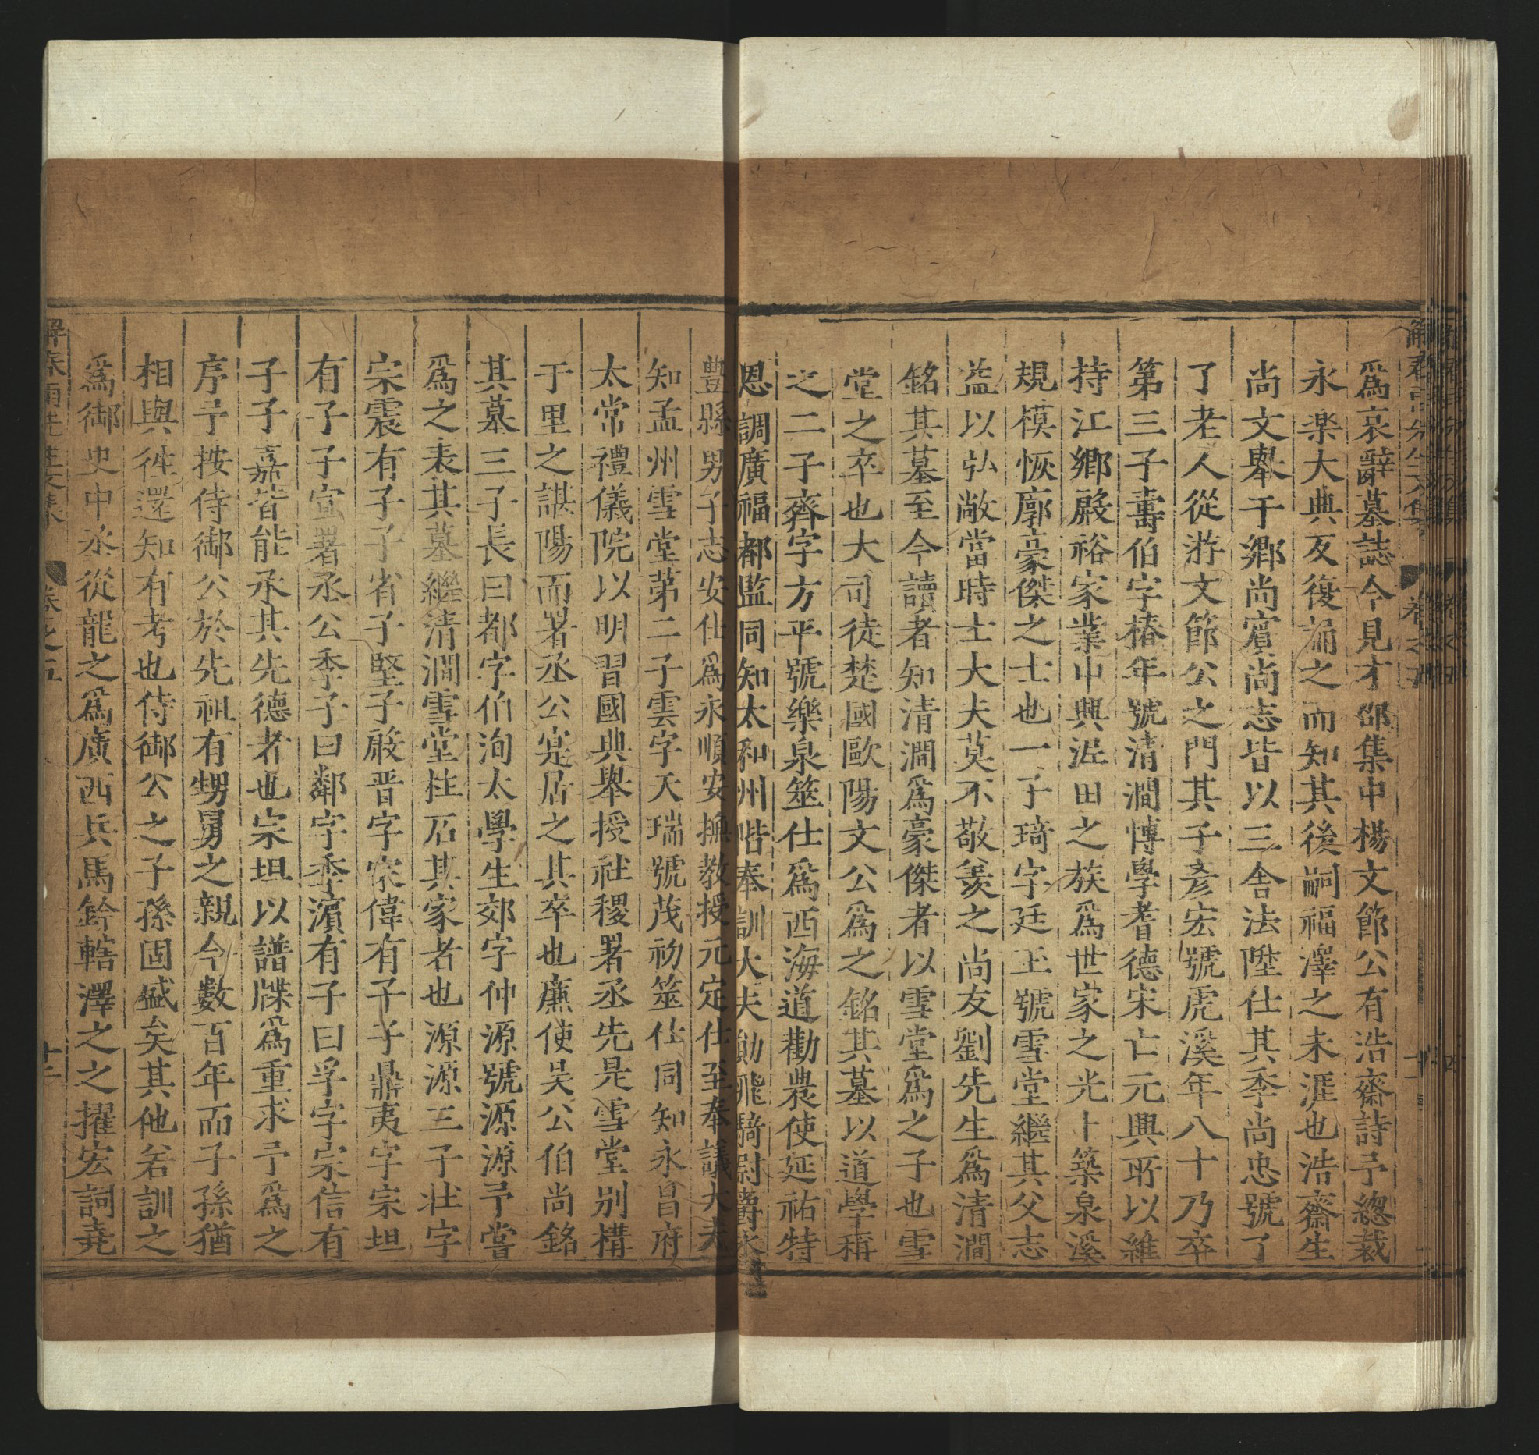 爲哀辭墓誌今見才邵集中楊文節公有浩齋詩予總裁
永楽大典反復誦之而知其後嗣福澤之未涯也浩齋生
尚文舉于鄉尚賔尚志皆以三舍法陞仕其季尚忠號了
了老人從游文節公之門其子彥宏號虎溪年八十乃卒
第三子壽伯字椿年號清澗愽學耆德宋亡元興所以維
持江鄉殷裕家業中興涩田之族爲世家之光卜築泉溪
規模恢廓豪傑之士也一子琦字廷玉號雪堂繼其父志
益以弘敞當時士大夫莫不敬羨之尚友劉先生爲清澗
銘其墓至今讀者知清澗爲豪傑者以雪堂爲之子也雪
堂之卒也大司徒楚國歐陽文公爲之銘其墓以道學稱
之二子齊字方平號樂泉筮仕爲西海道勸農使延祐特
恩調廣福都監同知太和州階奉訓大夫勛飛騎尉爵永
豊縣男子志安仕爲永順安撫教授元定仕至奉議大夫
知孟州雪堂第二子雲字天瑞號茂初筮仕同知永昌府
太常禮儀院以明習國典舉授社稷署丞先是雪堂别構
于里之諶陽而署丞公寔居之其卒也廉使吴公伯尚銘
其墓三子長曰都字伯洵太學生郊字仲源號源源予嘗
爲之表其墓繼清澗雪堂柱石其家者也源源三子壮字
宗震有子子省子堅子殷晋字宗偉有子子鼎夷字宗坦
有子子宣署丞公季子曰鄰字季濵有子曰孚字宗信有
子子嘉皆能承其先德者也宗坦以譜牒爲重求予爲之
序予按侍御公於先祖有甥舅之親今數百年而子孫猶
相與徃還知有考也侍御公之子孫固盛矣其他若訓之
爲御史中丞從龍之爲廣西兵馬鈐轄澤之之擢宏詞堯
解春雨先生文集 卷之五 十二